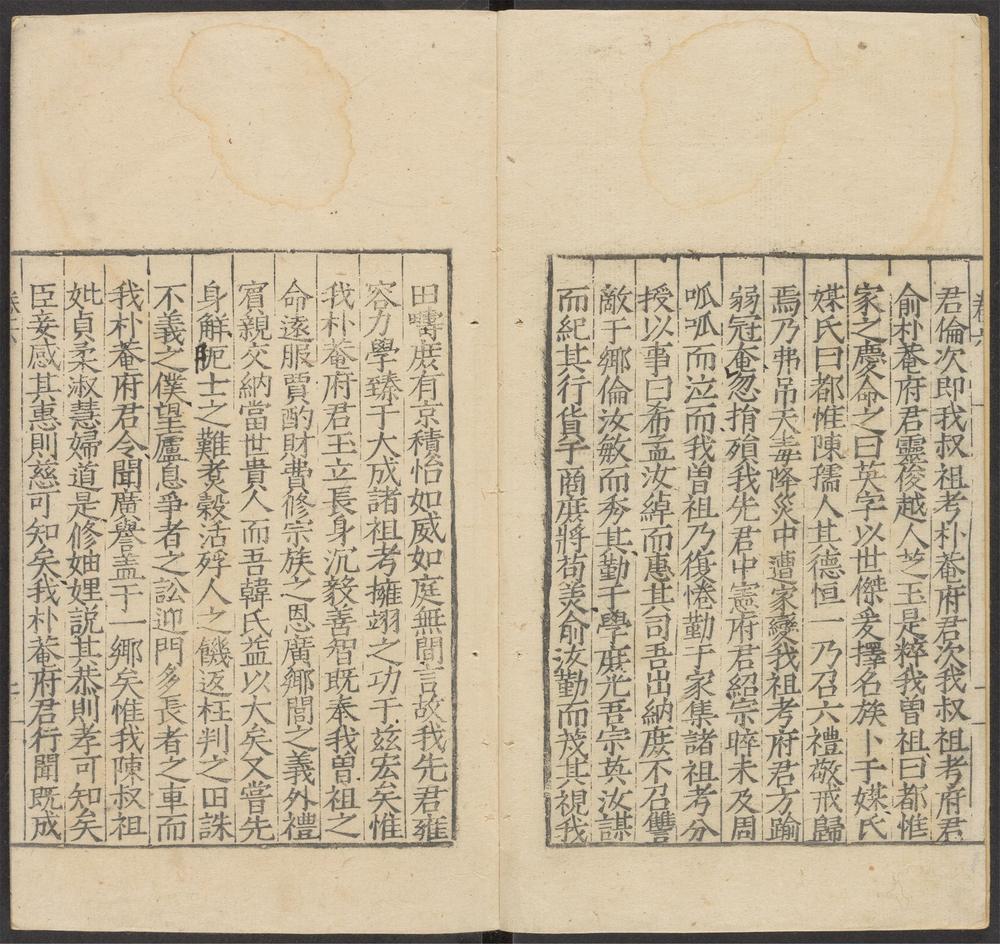 君倫次即我叔祖考朴菴府君次我叔祖考府君
俞朴菴府君靈俊越人芝玉是粹我曽祖曰都惟
家之慶命之曰英字以世傑爰擇名族卜于媒氏
媒氏曰都惟陳孺人其德恒一乃召六禮敬戒歸
焉乃弗吊天毒降災中遭家變我祖考府君方踰
弱冠奄忽捐殞我先君中憲府君紹宗晬未及周
呱呱而泣而我曽祖乃復惓勤于家集諸祖考分
授以事曰希孟汝綽而惠其司吾出納庶不召讐
敵于鄉倫汝敏而秀其勤于學庶光吾宗英汝謀
而紀其行貨于商庶將苟美俞汝勤而茂其視我
田疇庶有京積怡如威如庭無間言故我先君雍
容力學臻于大成諸祖考擁翊之功于茲宏矣惟
我朴菴府君玉立長身沉毅善智既奉我曽祖之
命遂服賈酌財費修宗族之恩廣鄉閭之義外禮
賓親交納當世貴人而吾韓氏益以大矣又嘗先
身解阨士之難煮穀活殍人之饑返枉判之田誅
不義之僕望廬息爭者之訟迎門多長者之車而
我朴菴府君令聞廣譽盖于一鄉矣惟我陳叔祖
妣貞柔淑慧婦道是修妯娌説其恭則孝可知矣
臣妾感其惠則慈可知矣我朴菴府君行聞既成